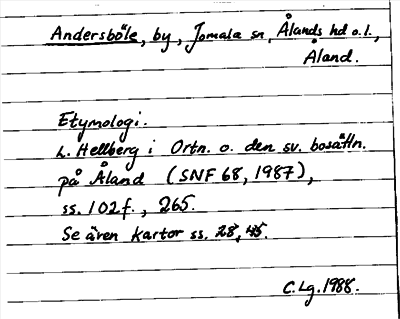 Andersböle, by, Jomala sn, Ålands hd o.l.,
Åland.
Etymologi.
L. Hellberg i Ortn. o. den sv. bosättn.
på Åland (SNF 68, 1987),
ss. 102f., 265.
Se även kartor ss. 28, 45.
C. Lg. 1988.